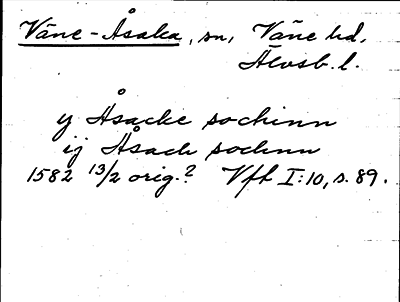 Väne-Åsaka, sn, Väne hd,
Älvsb. l.
y Åsacke sochinn
ij Åsack sochnn
1582 13/2 orig.? Vft I:10, s. 89.